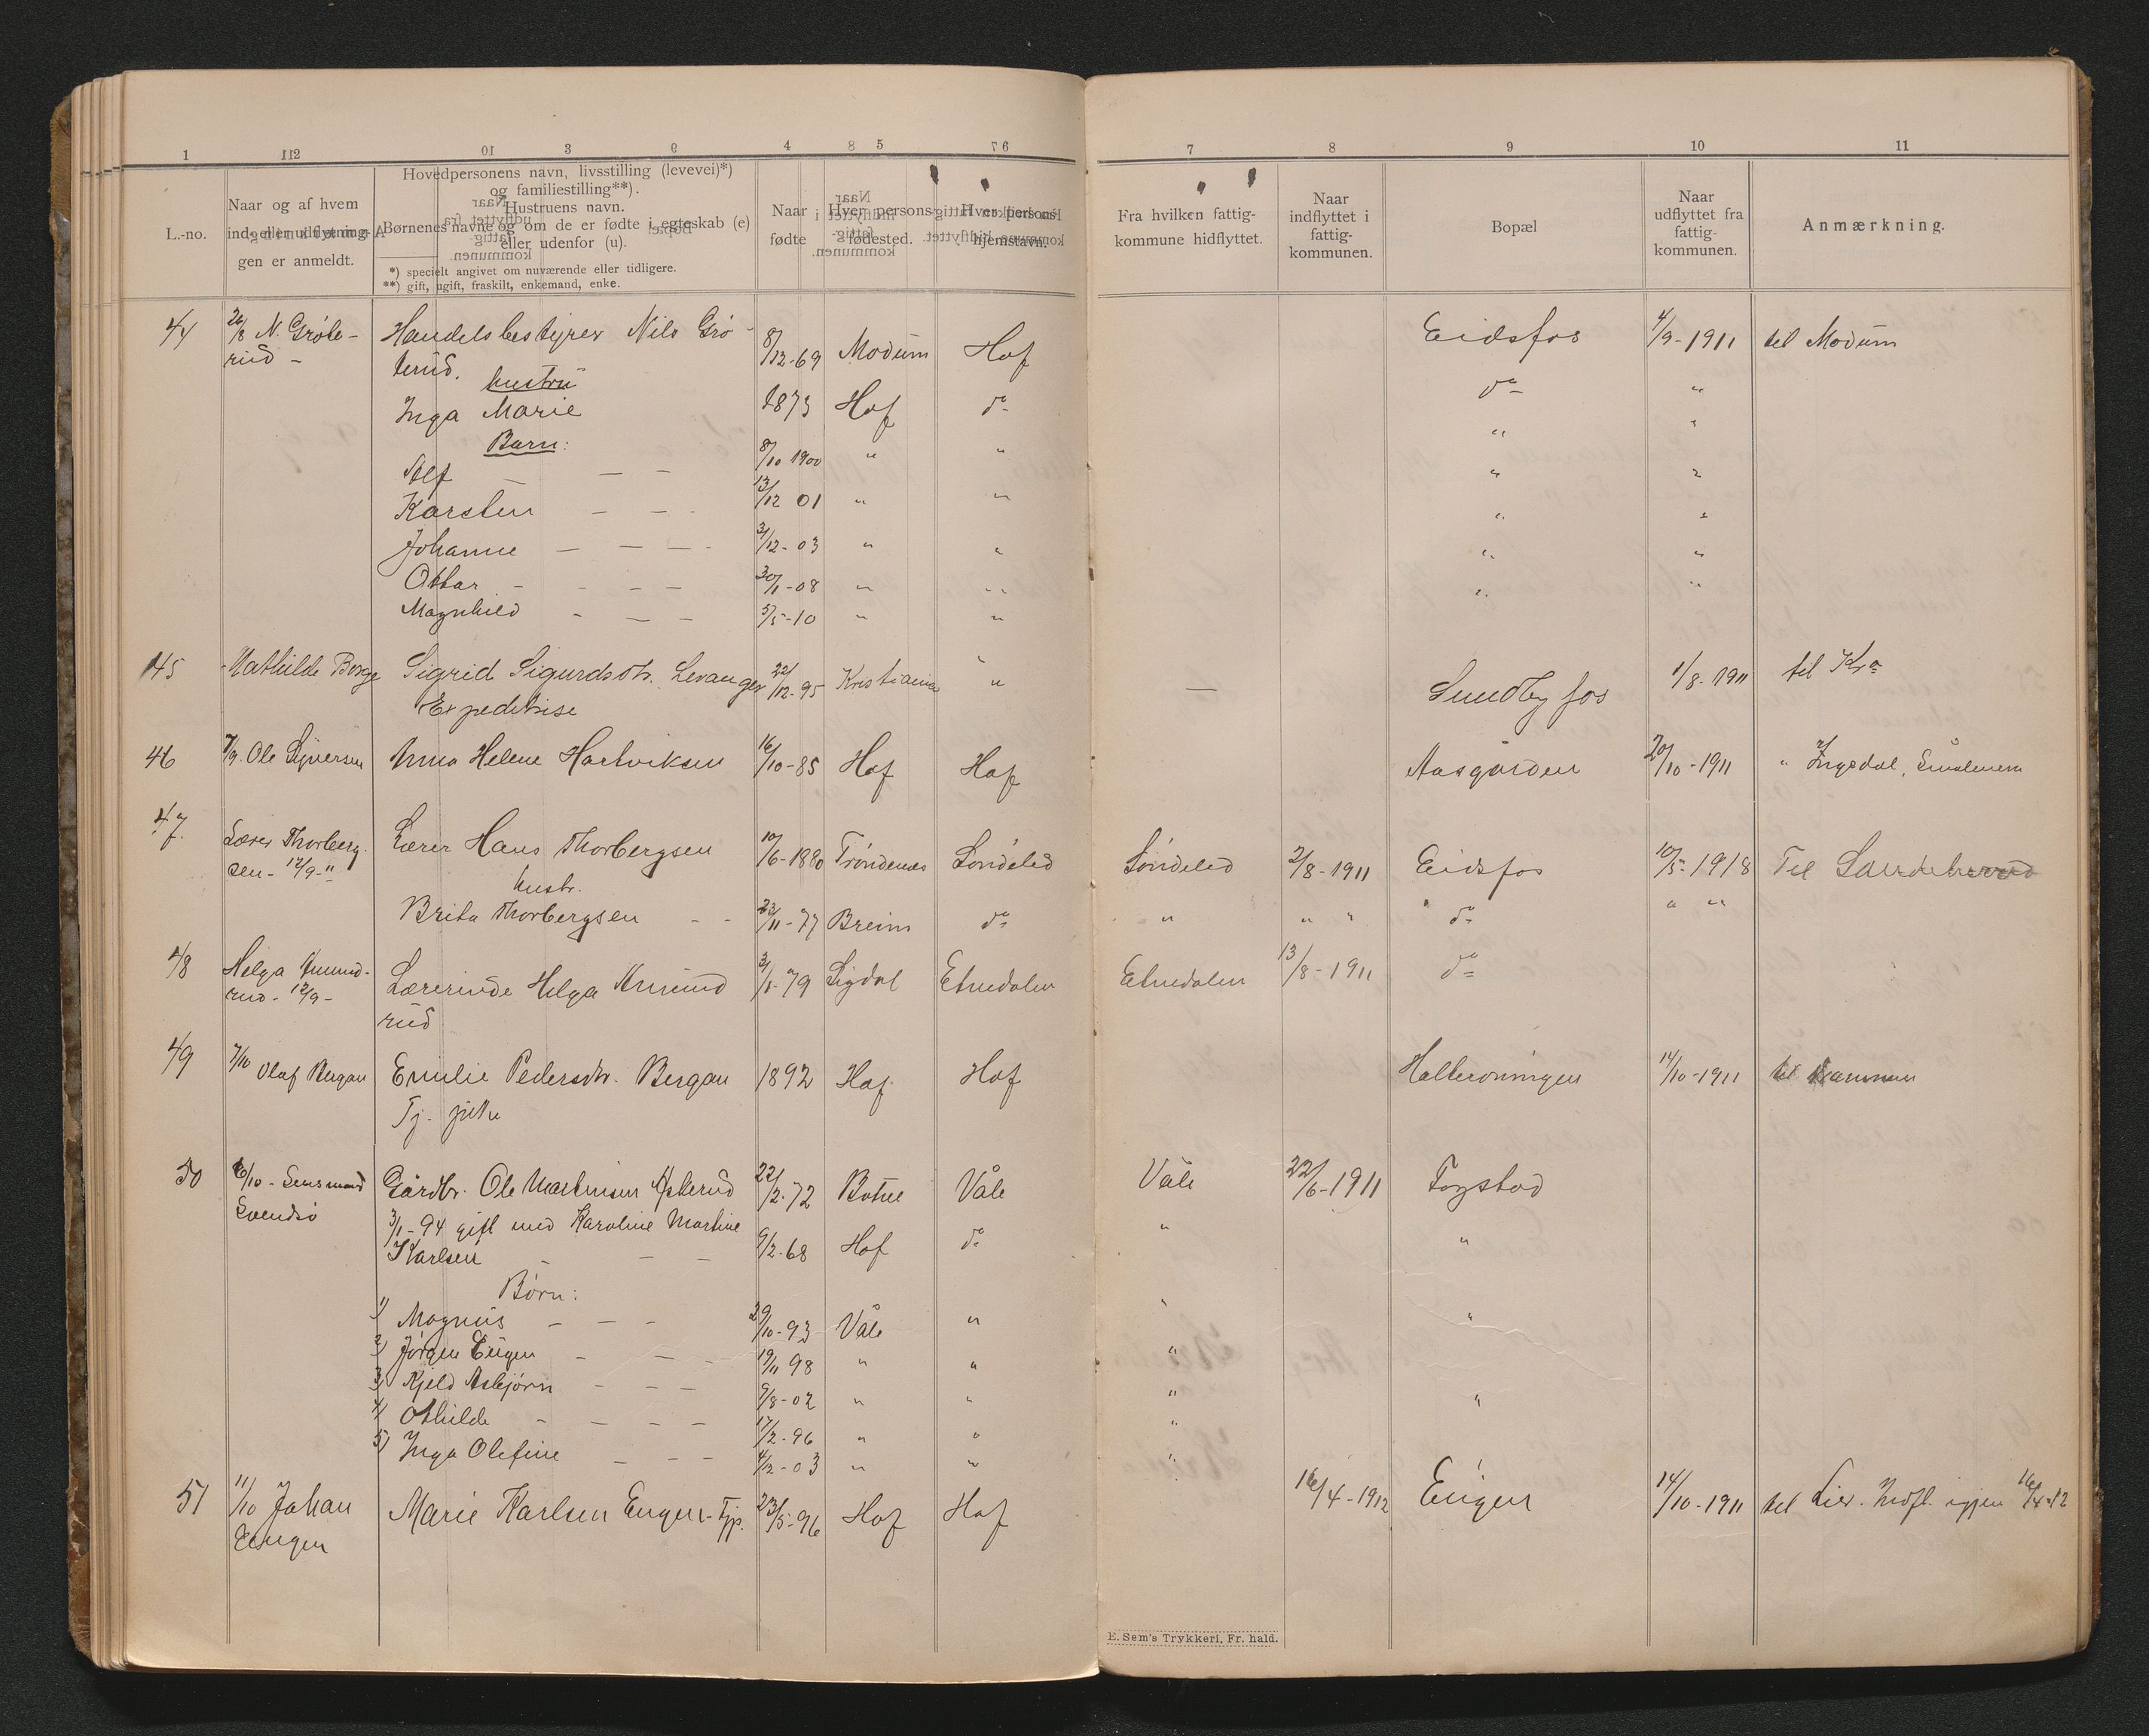 1 2 3 4 5 6 7 8 9 10 11
L.-no.
Naar og af hvem
ind- eller udflytnin-
gen er anmeldt.
Hovedpersonens navn, livsstilling (levevei)*)
og familiestilling**).
Hustruens navn.
Børnenes navne og om de er fødte i egteskab (e)
eller udenfor (u).
*) specielt angivet om nuværende eller tidligere.
**) gift, ugift, fraskilt, enkemand, enke.
Naar
fødte
Hver persons
fødested.
Hver persons
hjemstavn.
Fra hvilken fattig-
kommune hidflyttet.
Naar
indflyttet i
fattig-
kommunen.
Bopæl
Naar
udflyttet fra
fattig-
kommunen.
Anmærkning.
44 26/8 N. Grøte- Handelsbestyrer Nils Grø- 8/12-69 Modum Hof Eidsfos 4/9-1911 til Modum
rud - terud.
Hustru
Inga Marie 1873 Hof do do "
Barn:
Alf — — 8/10 1900 " " " "
Karsten — — 13/12 01 " " " "
Johanne — — — 31/12-03 " " " "
Ottar - - — — 30/1-08 " " " "
Magnhild - — — 5/5-10 " " " "
45 Mathilde Berge Sigrid Sigurdsdtr. Levanger 22/12-95 Kristiania " — Sundbyfos 1/8-1911 til Kra
Expeditrise
46 7/9. Ole Syversen Anna Helene Hartviksen 16/10-85 Hof Hof Aasgården 20/10-1911 "
47. Lærer Thorberg- Lærer Hans Thorbergsen 10/6-1880 Trondenes Søndeled Søndeled 2/8-1911 Eidsfos 10/5-1918 Til
sen - 12/9-11
Hustr.
Brita Thorbergsen - - 23/11-77 Breim do " " " do " "
48 Helga Amund- Lærerinde Helga Amund 31/1-79 Sigdal Etnedalen Etnedalen 13/8-1911 do
rud - 12/9 - rud
49 7/10 Olaf Bergan Emilie Pedersdtr. Bergan 1892 Hof Hof 14/10-1911 til
Tj. pike
50 6/10 - Lensmand Gårdbr. Ole Martinsen 22/2-72 Botne Våle Våle 22/6-1911 Fogstad
Svendsø 3/1-94 gift med Karoline Martine
Karlsen - — — 9/2-68 Hof do " "
Børn:
1) Magnus — — - 29/10-93 Våle " " "
2) Jørgen Eugen - — - 19/11 98 " " "
3) Kjeld Asbjørn - — — 9/8-02 " " " "
4) Othilde - — — — 17/2-96 " " "
5) Inga Olefine — — — 4/12-03 " " "
51 11/10 Johan Marie Karlsen Eugen - Tjp. 23/5-96 Hof Hof 16/4-1912 Eugen 14/10-1911 til Lier. Indfl. igjen 16/4-12
Eugen
E. Sem's Trykkeri, Fr. hald.